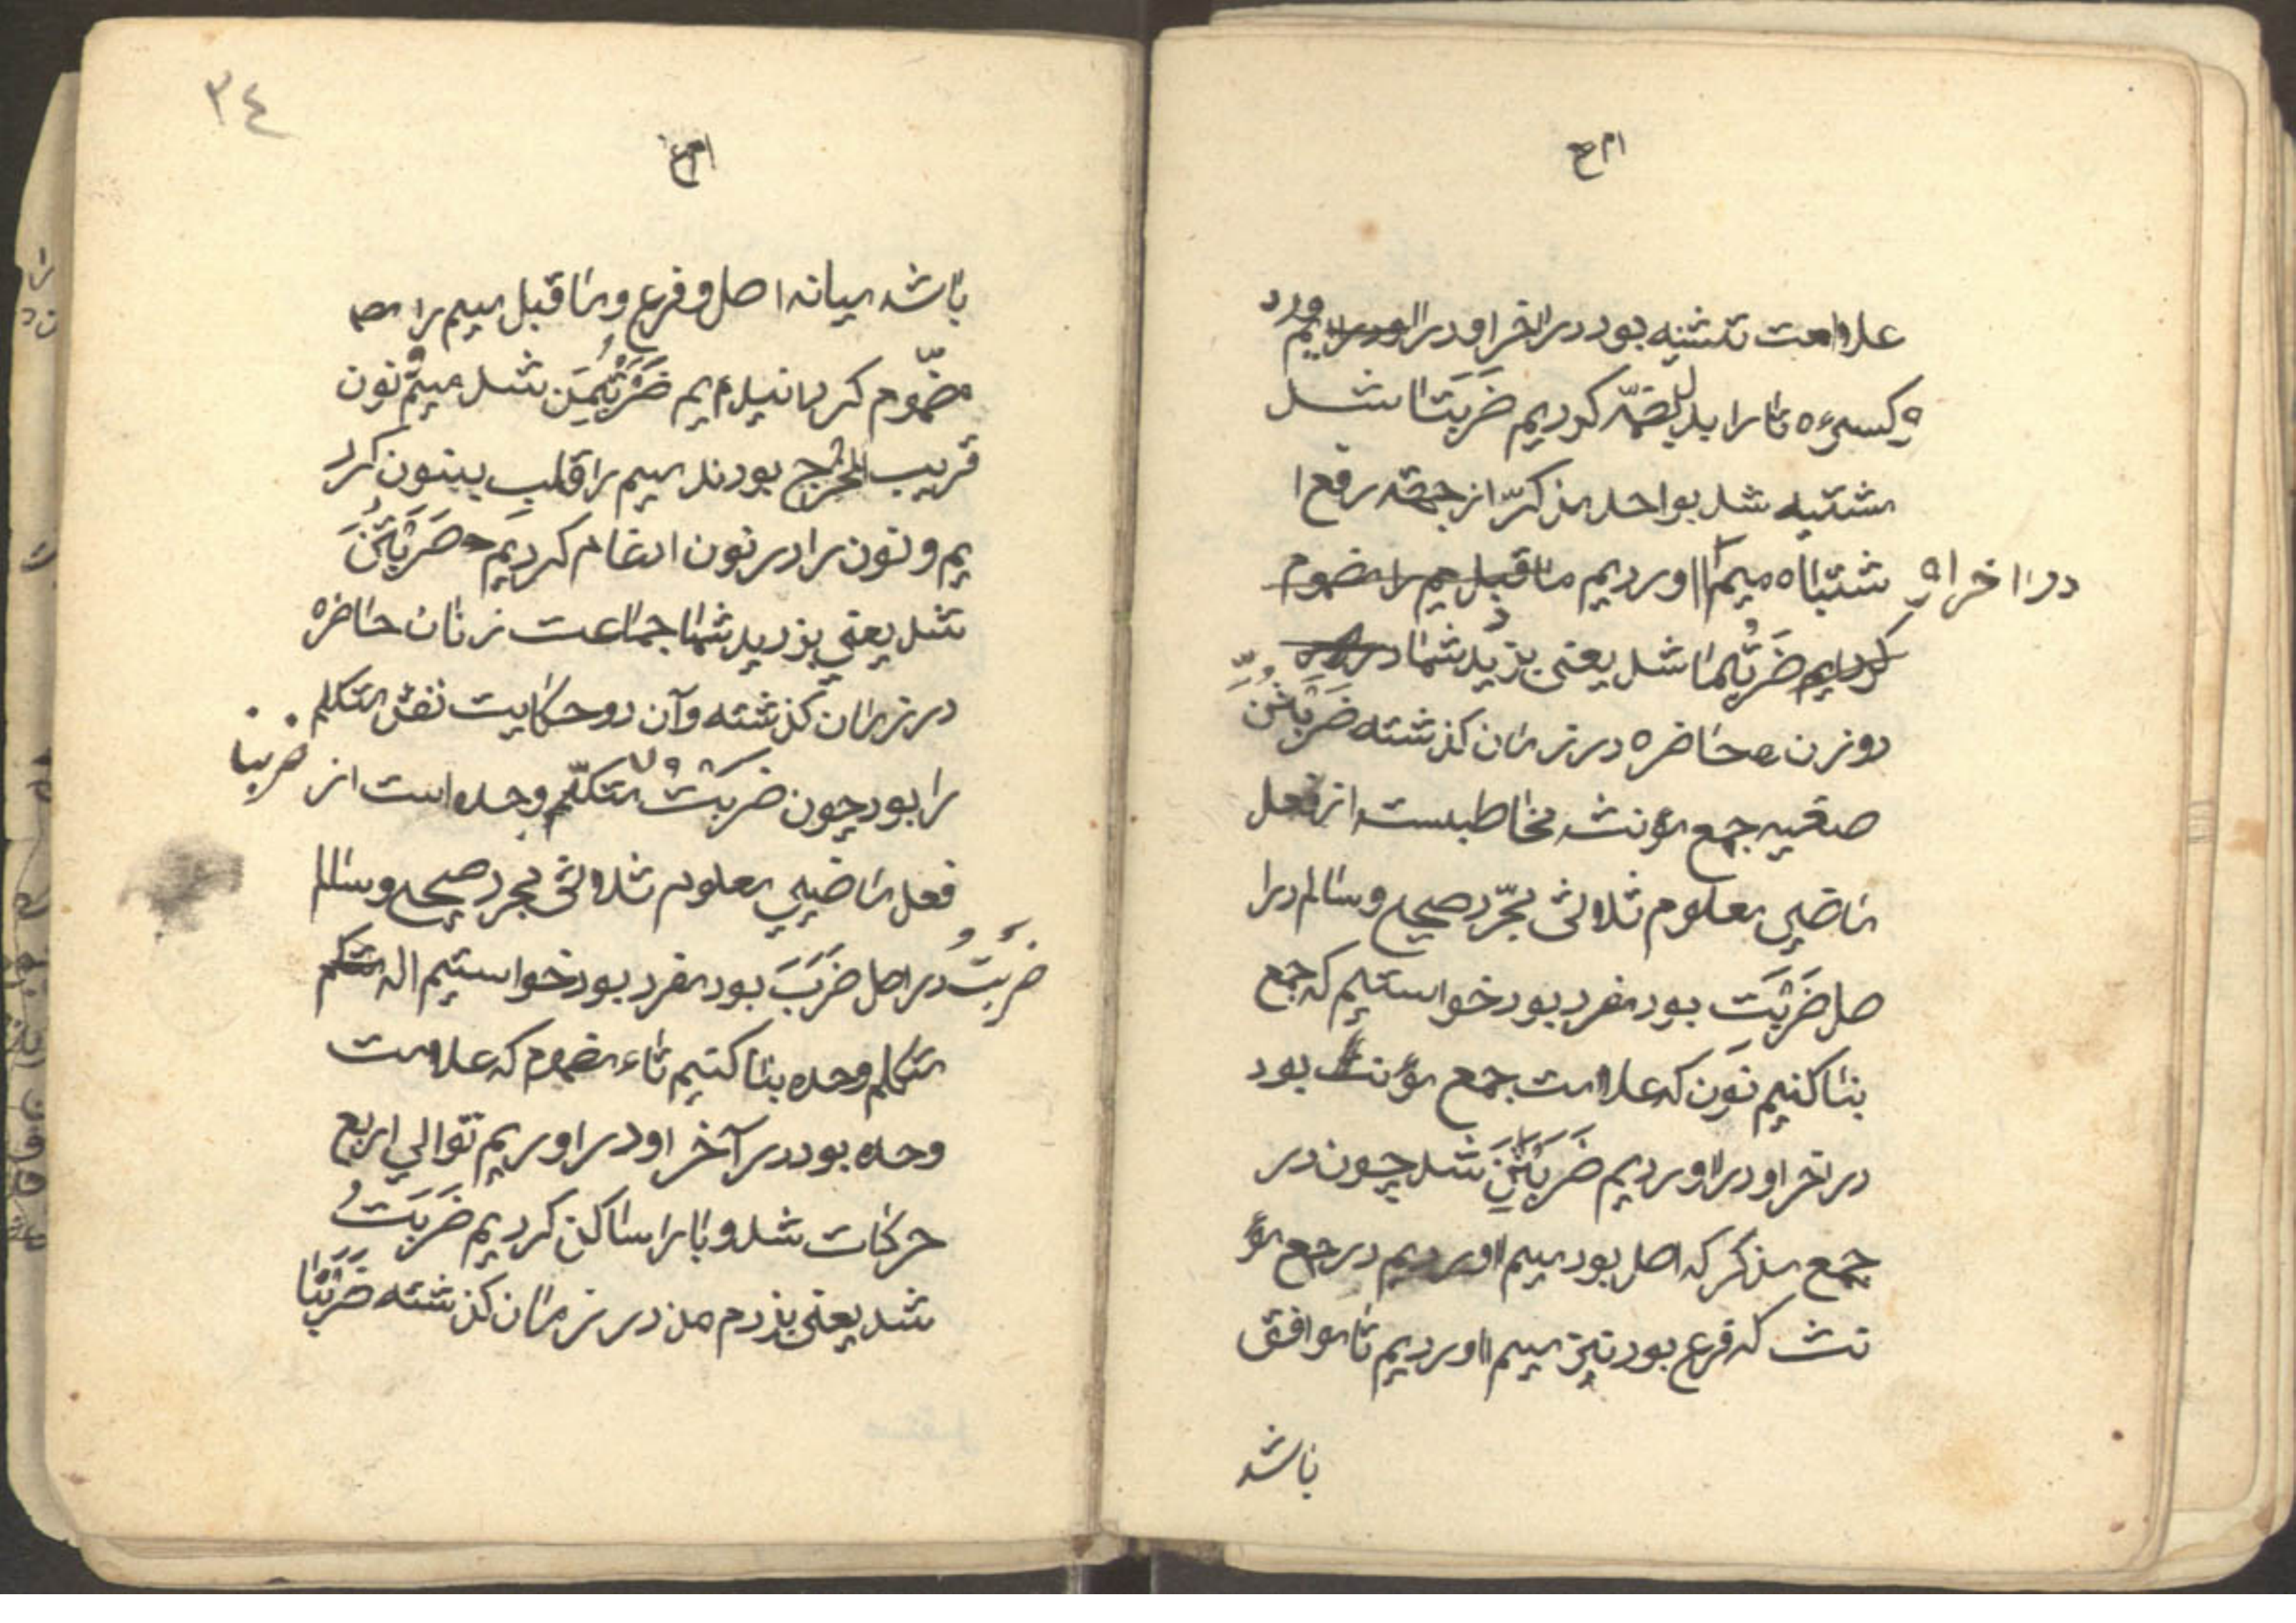 علامت تثنیه بود در اخر او در اوردیم
و کسرهٔ تا را بدل بضمّه کردیم ضَرَبَتَا شد
مشتبه شد بواحد مذکّر از جهته رفع ا
شتباه میم را اوردیم ما قبل میم را مضموم در اخر او
کردیم ضَرَبْتُمَا شد یعنی بزدید شما در
دو زن حاضره در زمان کذشته ضَرَبْتُنَّ
صغیه جمع مؤنث مخاطبست از فعل
ماضی معلوم ثلاثی مجّرد صحیح و سالم درا
صل ضَرَبْتَ بود مفرد بود خواستیم که جمع
بنا کنیم نون که علامت جمع مؤنث بود
در اخر او در اوردیم ضَرَبْتَنَ شد چون در
جمع مذکر که اصل بود میم اوردیم در جمع مؤ
نث که فرع بود نیز میم اوردیم تا موافق
باشد
٣٤
باشد میانه اصل و فرع و ما قبل میم را
مضموم کردانیدیم ضَرَبْتُمَنَ شد میم و نون
قریب المخرج بودند میم را قلب بنون کرد
یم و نون را در نون ادغام کردیم ضَرَبْتُنَّ
شد یعنی بزدید شما جماعت زنان حاضره
در زمان کذشته و آن دو حکایت نفس متکلم
را بود چون ضربتُ متکلّم وحده است از ضربنا
فعل ماضی معلوم ثلاثی مجرد صحیح و سالم
ضربتُ در اصل ضَرَبَ بود مفرد بود خواستیم که متکم
متکلم وحده بنا کنیم تاء مضموم که علامت
وحده بود در آخر او در اوریم توالی اربع
حرکات شد و با را ساکن کردیم ضَرَبتُ
شد یعنی بزدم من در زمان کذشته ضَرَبْنَا